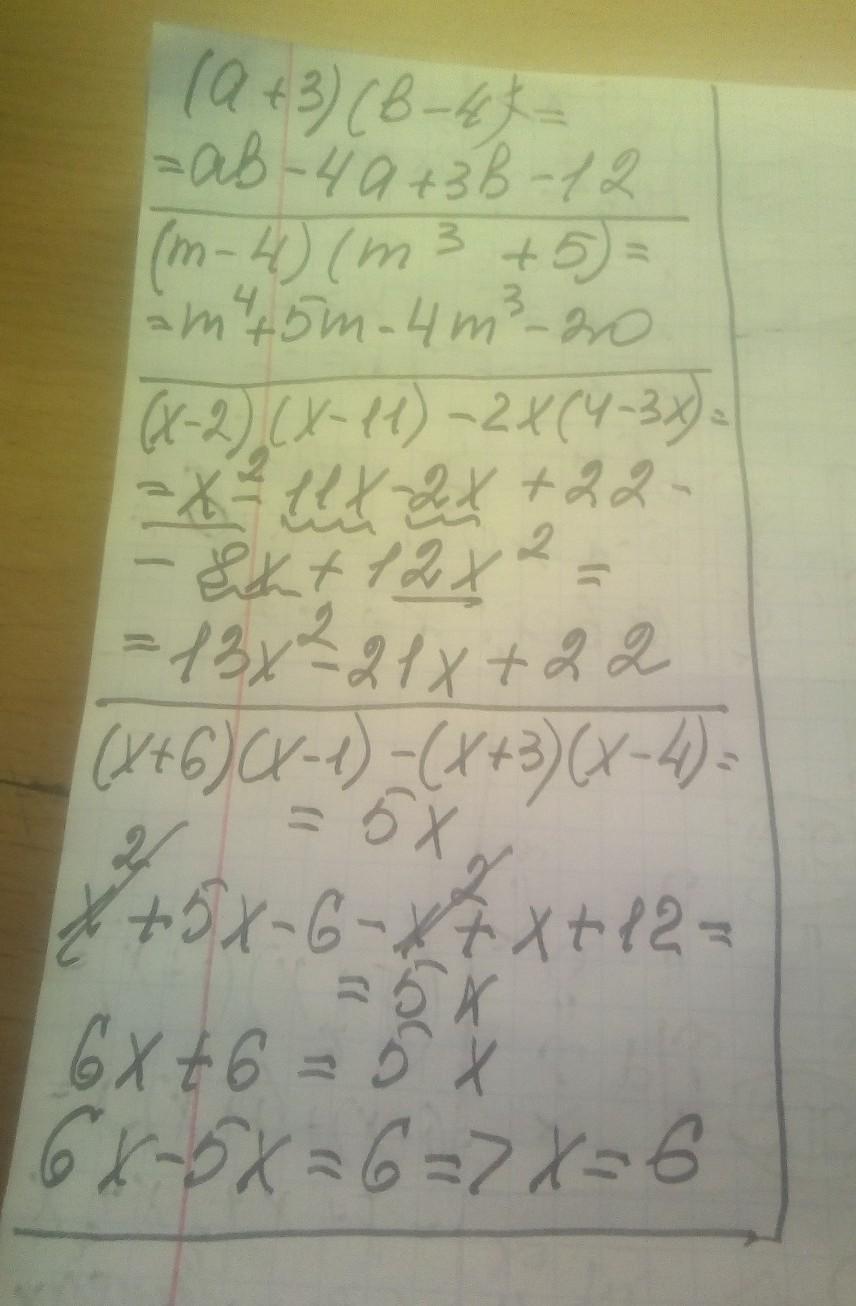 (a+3)(b-4)=
=ab-4a+3b-12
(m-4)(m³+5)=
=m⁴+5m-4m³-20
(x-2)(x-11)-2x(4-3x)=
=x²-11x-2x+22-
-8x+12x²=
=13x²-21x+22
(x+6)(x-1)-(x+3)(x-4)=
=5x
x²+5x-6-x²+x+12=
=5x
6x+6=5x
6x-5x=6=>x=6